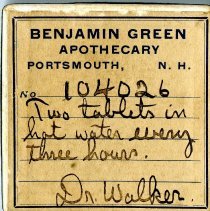 BENJAMIN GREEN
APOTHECARY
PORTSMOUTH, N. H.
No 104026
Two tablets in
hot water every
three hours.
Dr. Walker.